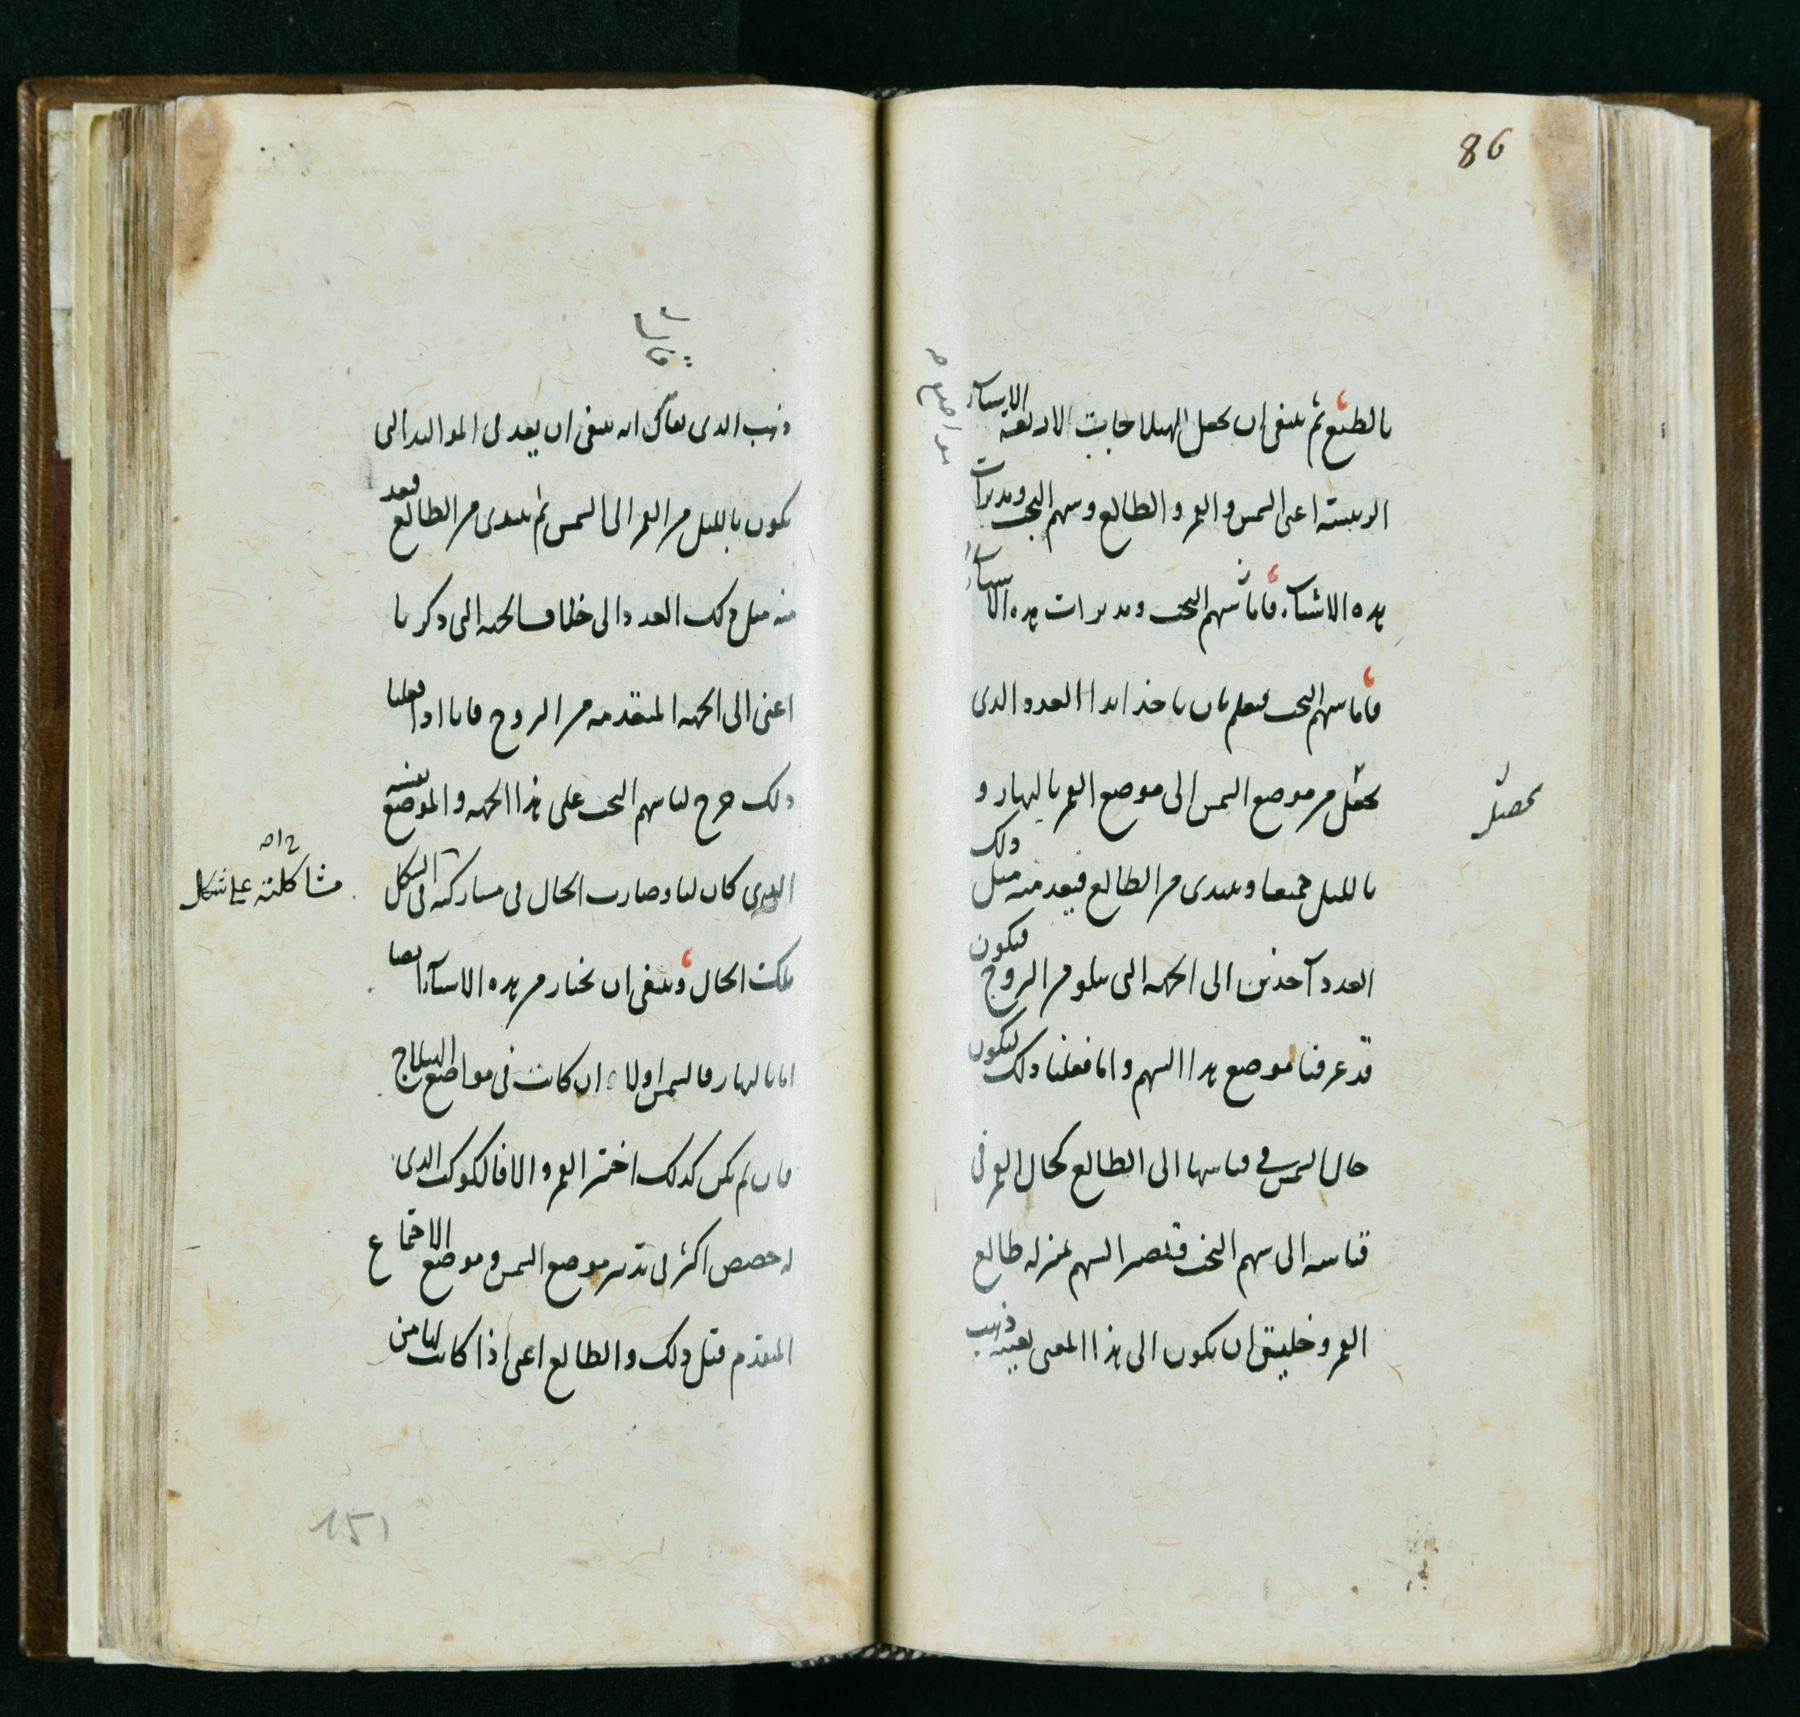 86
بالطبع ثم ينبغى ان يجعل الهيلاجات الاربعة الاشياء
الرييسة اعنى الشمس والقمر والطالع وسهم البخت ومدبرات
هذه الاشياء فاما سهم البخت ومدبرات هذه الاشياء
فاما سهم البخت فيعلم بان ياخذ ابدا العدد الذى
يحصّل من موضع الشمس الى موضع القمر بالنهار و
بالليل جميعا ويبتدى من الطالع فيعد منه مثل ذلك
العدد آخذين الى الجهة التى يتلو من البروج فيكون
قد عرفنا موضع هذا السهم وانما فعلنا ذلك ليكون
حال الشمس فى قياسها الى الطالع كحال القمر فى
قياسه الى سهم البخت فيصير السهم بمنزلة طالع
القمر وخليق ان يكون الى هذا المعنى بعينه ذهب
يحصل
ذهب الذى يقال انه ينبغى ان يعد فى المواليد التى
يكون بالليل من القمر الى الشمس ثم يبتدى من الطالع فيعد
منه مثل ذلك العدد الى خلاف الجهة التى ذكرنا
اعنى الى الجهة المتقدمة من البروج فانا اذا فعلنا
ذلك خرج لنا سهم البخت على هذا الجهة والموضع بعينه
الذى كان لنا وصارت الحال فى مشاركته فى الشكل
تلك الحال وينبغى ان يختار من هذه الاشياء ايضا
اما بالنهار فالشمس اولا ان كانت فى مواضع الهيلاج
فان لم يكن كذلك اختر القمر والا فالكوكب الذى
له حصص اكثر فى تدبير موضع الشمس وموضع الاجتماع
المتقدم قبل ذلك والطالع اعنى اذا كانت لنا من
مشاكلته على شكل
151